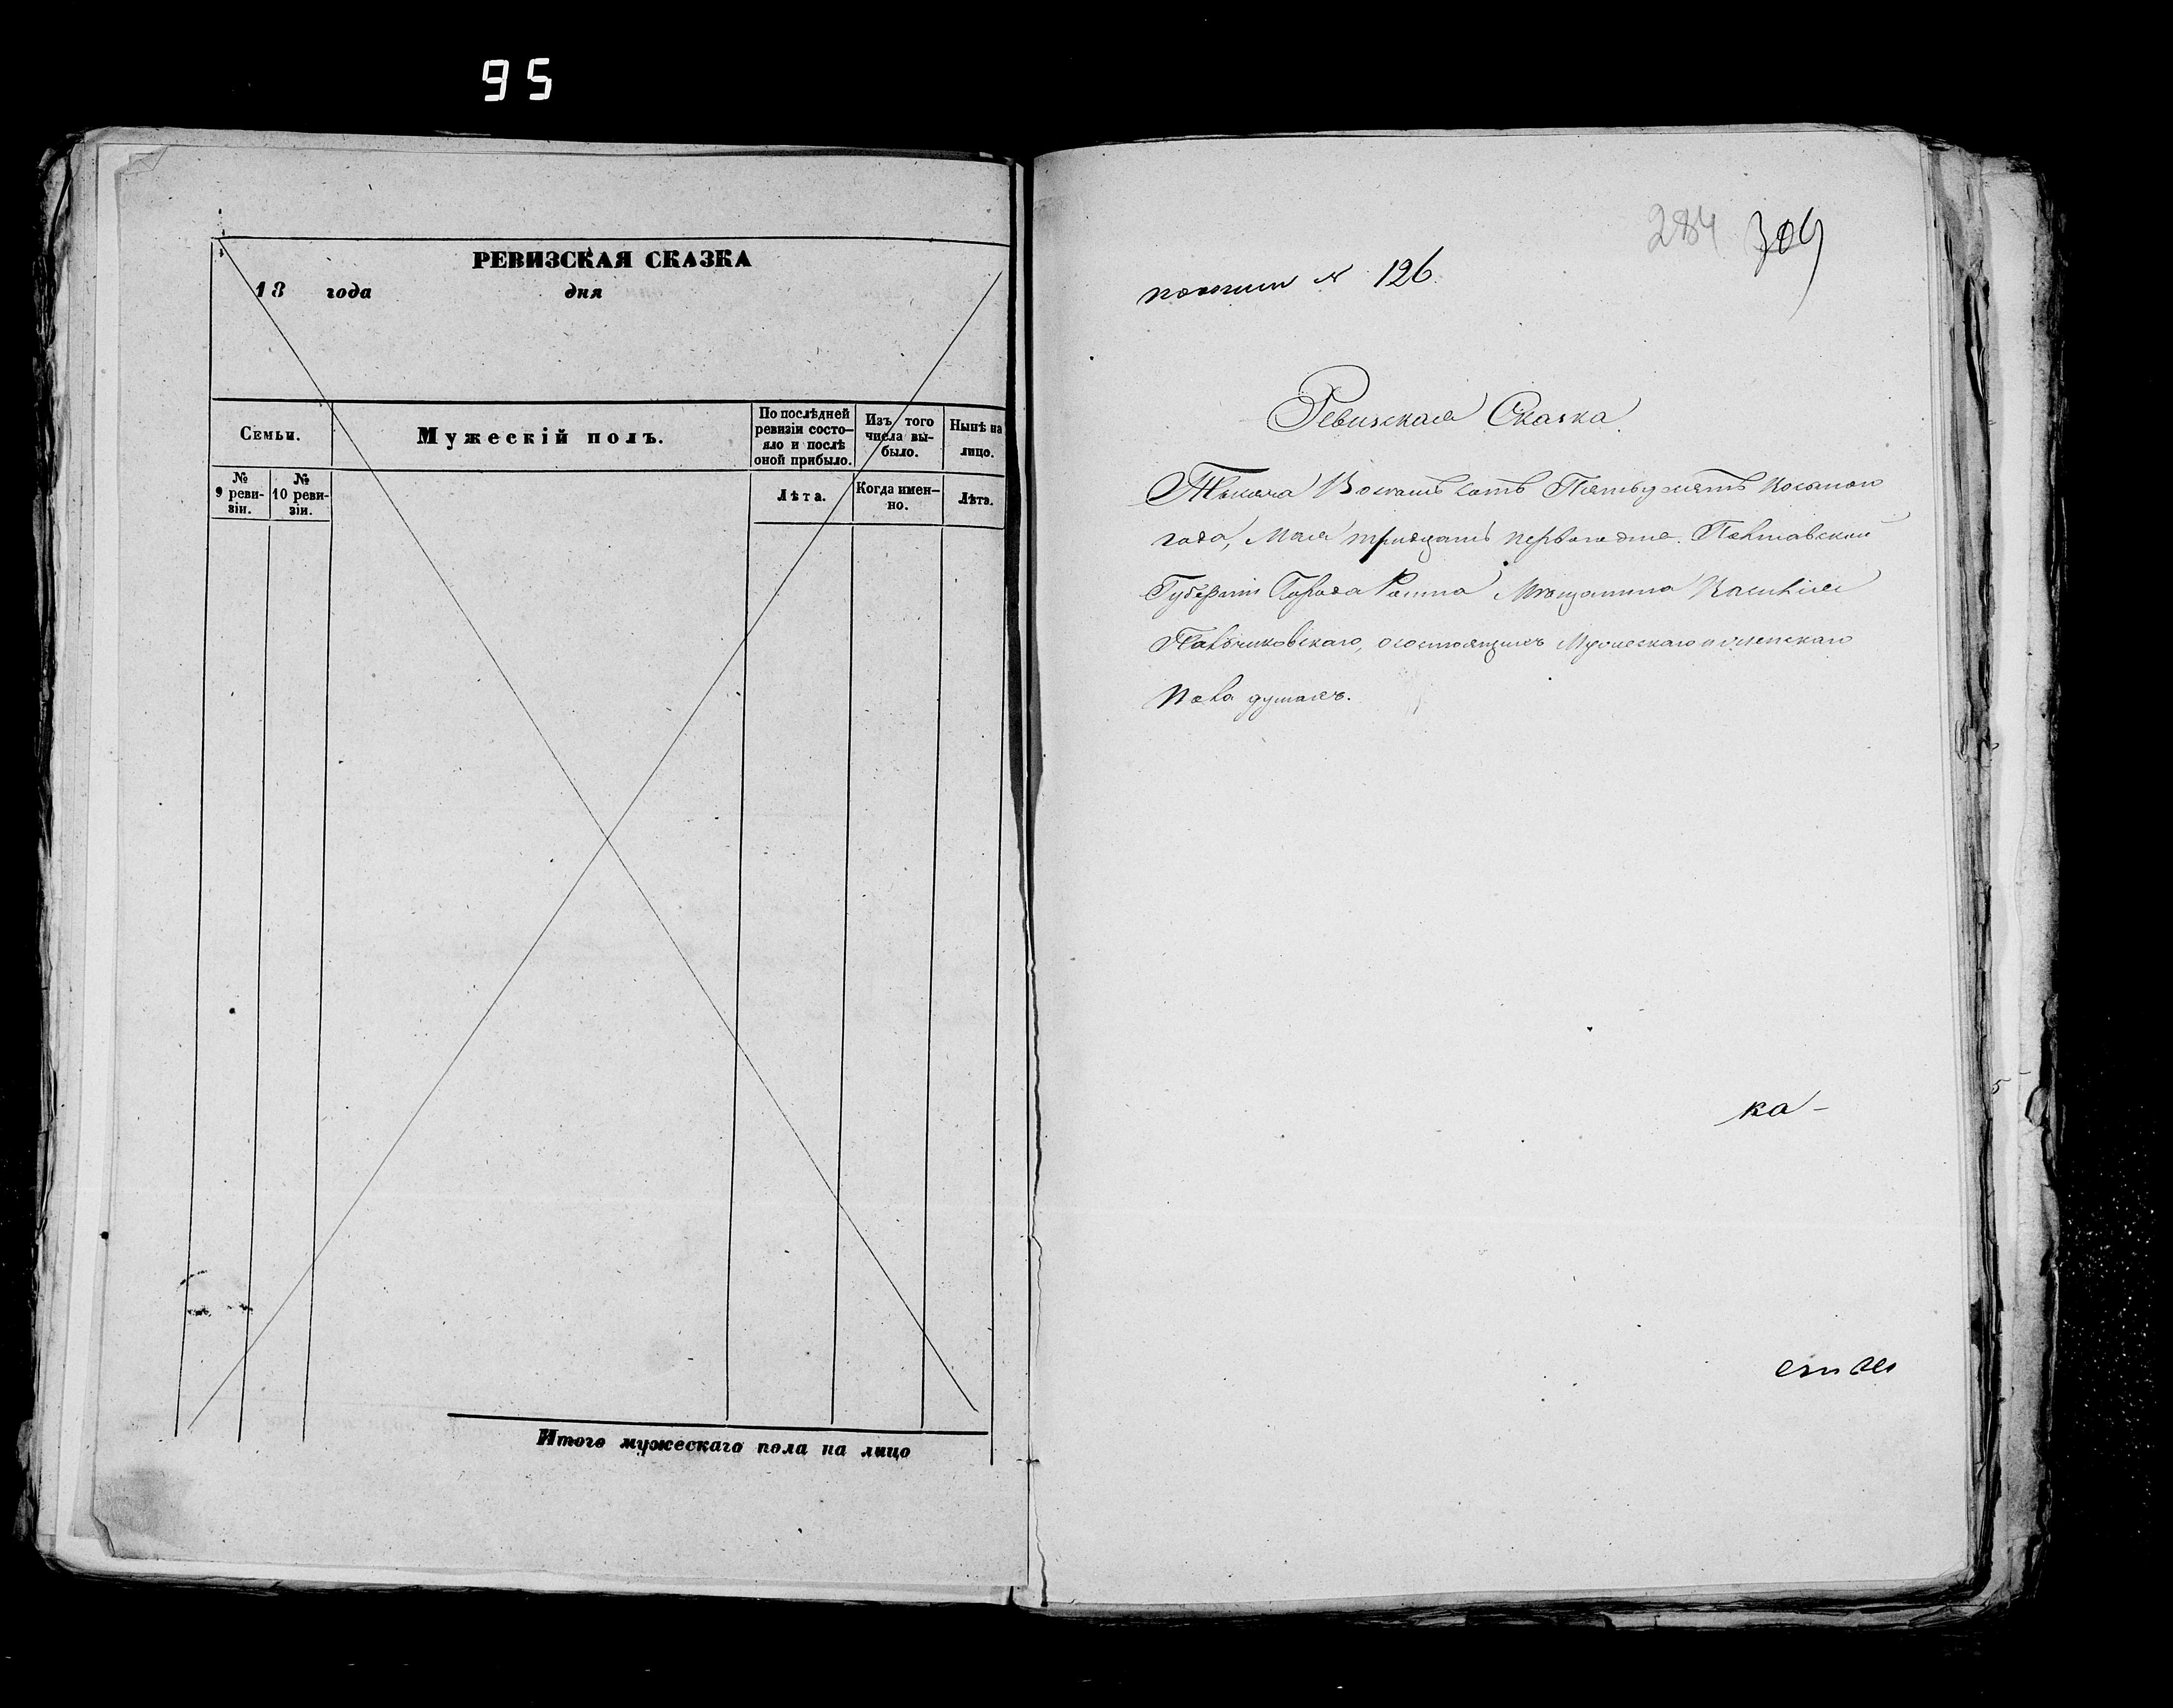 95
РЕВИЗСКАЯ СКАЗКА
18 года дня
Семьи.
№ 9 реви-
зіи.
№ 10 реви-
зіи.
Мужескій полъ.
По послѣдней
ревизіи состо-
яло и послѣ
оной прибыло.
Лѣта.
Изъ того
числа вы-
было.
Когда имен-
но.
Нынѣ на
лицо.
Лѣта.
Итого мужескаго пола на лицо
284 309
№ 126
Ревизская Сказка
Тысяча Восемь сотъ Пятьдесятъ Восьмого
года, Мая тридцать перваго дня. Полтавской
Губерніи Города Ромна Мѣщанина Василія
о состоящихъ Мужескаго и женскаго
Пола душахъ.
ка-